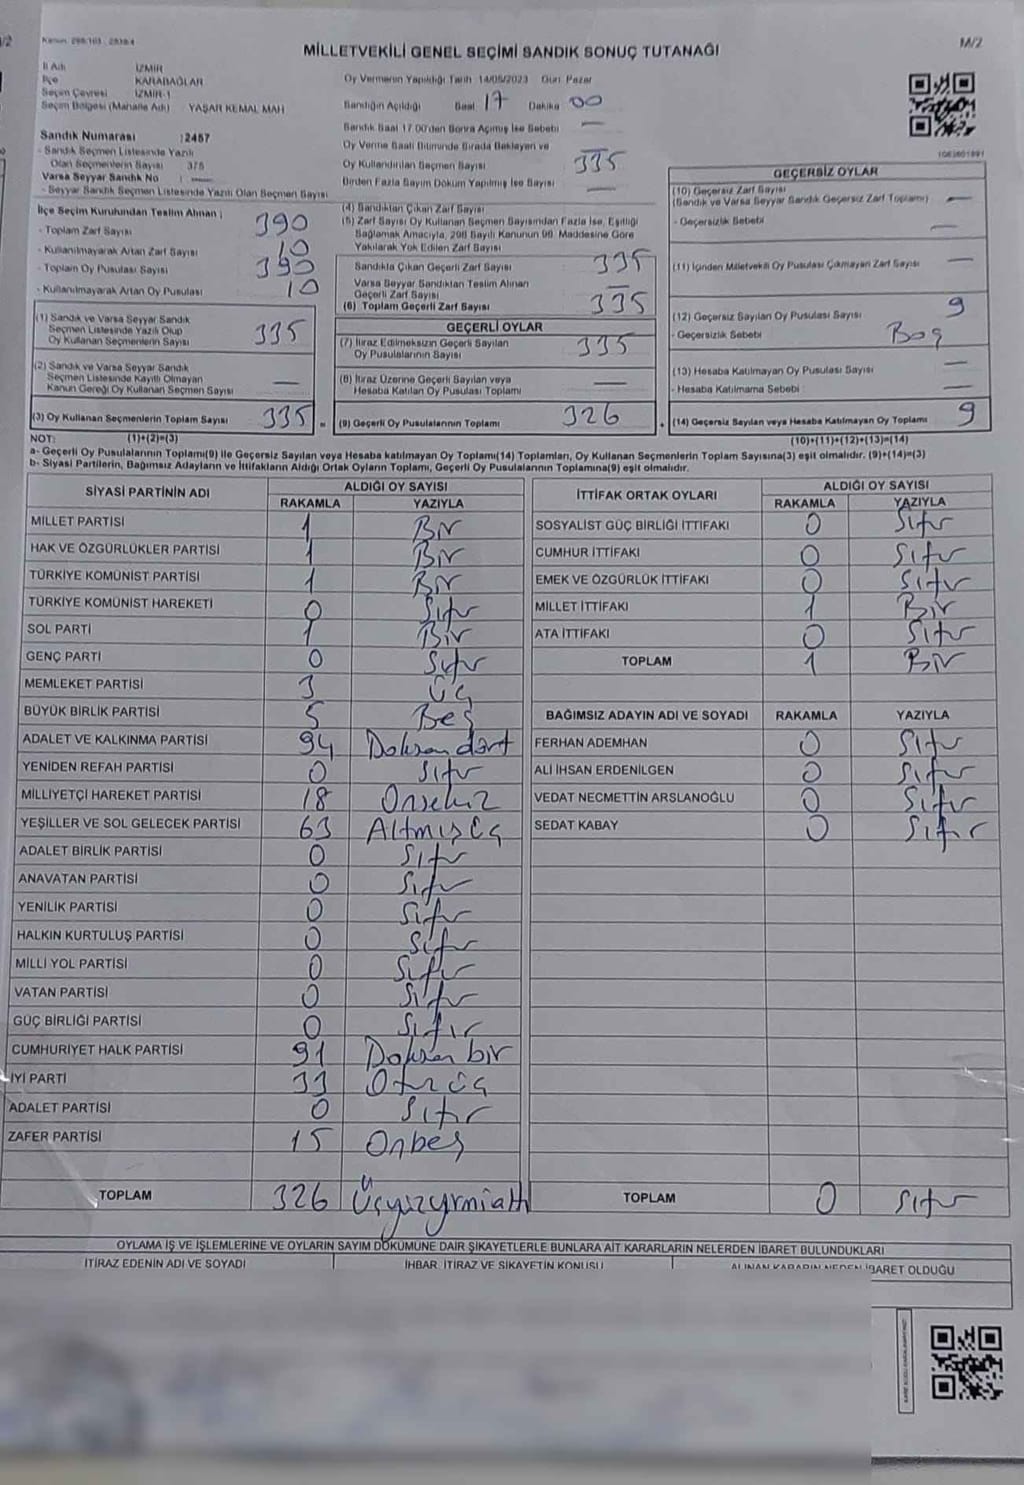 Kanun: 298/103 , 2839/4
M/2
MİLLETVEKİLİ GENEL SEÇİMİ SANDIK SONUÇ TUTANAĞI
İl Adı İZMİR
İlçe KARABAĞLAR
Seçim Çevresi İZMİR-1
Seçim Bölgesi (Mahalle Adı) YAŞAR KEMAL MAH
Oy Vermenin Yapıldığı Tarih 14/05/2023 Gün Pazar
Sandığın Açıldığı Saat 17 Dakika 00
Sandık Saat 17.00'den Sonra Açımış İse Sebebi —
Oy Verme Saati Bitiminde Sırada Bekleyen ve
Oy Kullandırılan Seçmen Sayısı 335
Birden Fazla Sayım Döküm Yapılmış İse Sayısı —
Sandık Numarası : 2457
- Sandık Seçmen Listesinde Yazılı
Olan Seçmenlerin Sayısı 375
Varsa Seyyar Sandık No : —
- Seyyar Sandık Seçmen Listesinde Yazılı Olan Seçmen Sayısı
İlçe Seçim Kurulundan Teslim Alınan ;
- Toplam Zarf Sayısı 390
- Kullanılmayarak Artan Zarf Sayısı 10
- Toplam Oy Pusulası Sayısı 390
- Kullanılmayarak Artan Oy Pusulası 10
(1) Sandık ve Varsa Seyyar Sandık
Seçmen Listesinde Yazılı Olup
Oy Kullanan Seçmenlerin Sayısı 335
(2) Sandık ve Varsa Seyyar Sandık
Seçmen Listesinde Kayıtlı Olmayan
Kanun Gereği Oy Kullanan Seçmen Sayısı —
(3) Oy Kullanan Seçmenlerin Toplam Sayısı 335 =
(4) Sandıktan Çıkan Zarf Sayısı
(5) Zarf Sayısı Oy Kullanan Seçmen Sayısından Fazla İse, Eşitliği
Sağlamak Amacıyla, 298 Sayılı Kanunun 98. Maddesine Göre
Yakılarak Yok Edilen Zarf Sayısı
Sandıkta Çıkan Geçerli Zarf Sayısı 335
Varsa Seyyar Sandıktan Teslim Alınan
Geçerli Zarf Sayısı —
(6) Toplam Geçerli Zarf Sayısı 335
GEÇERLİ OYLAR
(7) İtiraz Edilmeksizin Geçerli Sayılan
Oy Pusulalarının Sayısı 335
(8) İtiraz Üzerine Geçerli Sayılan veya
Hesaba Katılan Oy Pusulası Toplamı —
(9) Geçerli Oy Pusulalarının Toplamı 326 +
1063601891
GEÇERSİZ OYLAR
(10) Geçersiz Zarf Sayısı
(Sandık ve Varsa Seyyar Sandık Geçersiz Zarf Toplamı) —
- Geçersizlik Sebebi —
(11) İçinden Milletvekili Oy Pusulası Çıkmayan Zarf Sayısı —
(12) Geçersiz Sayılan Oy Pusulası Sayısı 9
- Geçersizlik Sebebi Boş
(13) Hesaba Katılmayan Oy Pusulası Sayısı —
- Hesaba Katılmama Sebebi —
(14) Geçersiz Sayılan veya Hesaba Katılmayan Oy Toplamı 9
NOT: (1)+(2)=(3) (10)+(11)+(12)+(13)=(14)
a- Geçerli Oy Pusulalarının Toplamı(9) ile Geçersiz Sayılan veya Hesaba katılmayan Oy Toplamı(14) Toplamları, Oy Kullanan Seçmenlerin Toplam Sayısına(3) eşit olmalıdır. (9)+(14)=(3)
b- Siyasi Partilerin, Bağımsız Adayların ve İttifakların Aldığı Ortak Oyların Toplamı, Geçerli Oy Pusulalarının Toplamına(9) eşit olmalıdır.
SİYASİ PARTİNİN ADI ALDIĞI OY SAYISI
RAKAMLA YAZIYLA
MİLLET PARTİSİ 1 Bir
HAK VE ÖZGÜRLÜKLER PARTİSİ 1 Bir
TÜRKİYE KOMÜNİST PARTİSİ 1 Bir
TÜRKİYE KOMÜNİST HAREKETİ 0 Sıfır
SOL PARTİ 1 Bir
GENÇ PARTİ 0 Sıfır
MEMLEKET PARTİSİ 3 Üç
BÜYÜK BİRLİK PARTİSİ 5 Beş
ADALET VE KALKINMA PARTİSİ 94 Doksan dört
YENİDEN REFAH PARTİSİ 0 Sıfır
MİLLİYETÇİ HAREKET PARTİSİ 18 Onsekiz
YEŞİLLER VE SOL GELECEK PARTİSİ 63 Altmış üç
ADALET BİRLİK PARTİSİ 0 Sıfır
ANAVATAN PARTİSİ 0 Sıfır
YENİLİK PARTİSİ 0 Sıfır
HALKIN KURTULUŞ PARTİSİ 0 Sıfır
MİLLİ YOL PARTİSİ 0 Sıfır
VATAN PARTİSİ 0 Sıfır
GÜÇ BİRLİĞİ PARTİSİ 0 Sıfır
CUMHURİYET HALK PARTİSİ 91 Doksan bir
İYİ PARTİ 33 Otuz üç
ADALET PARTİSİ 0 Sıfır
ZAFER PARTİSİ 15 Onbeş
TOPLAM 326 Üçyüzyirmialtı
İTTİFAK ORTAK OYLARI ALDIĞI OY SAYISI
RAKAMLA YAZIYLA
SOSYALİST GÜÇ BİRLİĞİ İTTİFAKI 0 Sıfır
CUMHUR İTTİFAKI 0 Sıfır
EMEK VE ÖZGÜRLÜK İTTİFAKI 0 Sıfır
MİLLET İTTİFAKI 1 Bir
ATA İTTİFAKI 0 Sıfır
TOPLAM 1 Bir
BAĞIMSIZ ADAYIN ADI VE SOYADI RAKAMLA YAZIYLA
FERHAN ADEMHAN 0 Sıfır
ALİ İHSAN ERDENİLGEN 0 Sıfır
VEDAT NECMETTİN ARSLANOĞLU 0 Sıfır
SEDAT KABAY 0 Sıfır
TOPLAM 0 Sıfır
OYLAMA İŞ VE İŞLEMLERİNE VE OYLARIN SAYIM DÖKÜMÜNE DAİR ŞİKAYETLERLE BUNLARA AİT KARARLARIN NELERDEN İBARET BULUNDUKLARI
İTİRAZ EDENİN ADI VE SOYADI İHBAR, İTİRAZ VE ŞİKAYETİN KONUSU ALINAN KARARIN NEDEN İBARET OLDUĞU